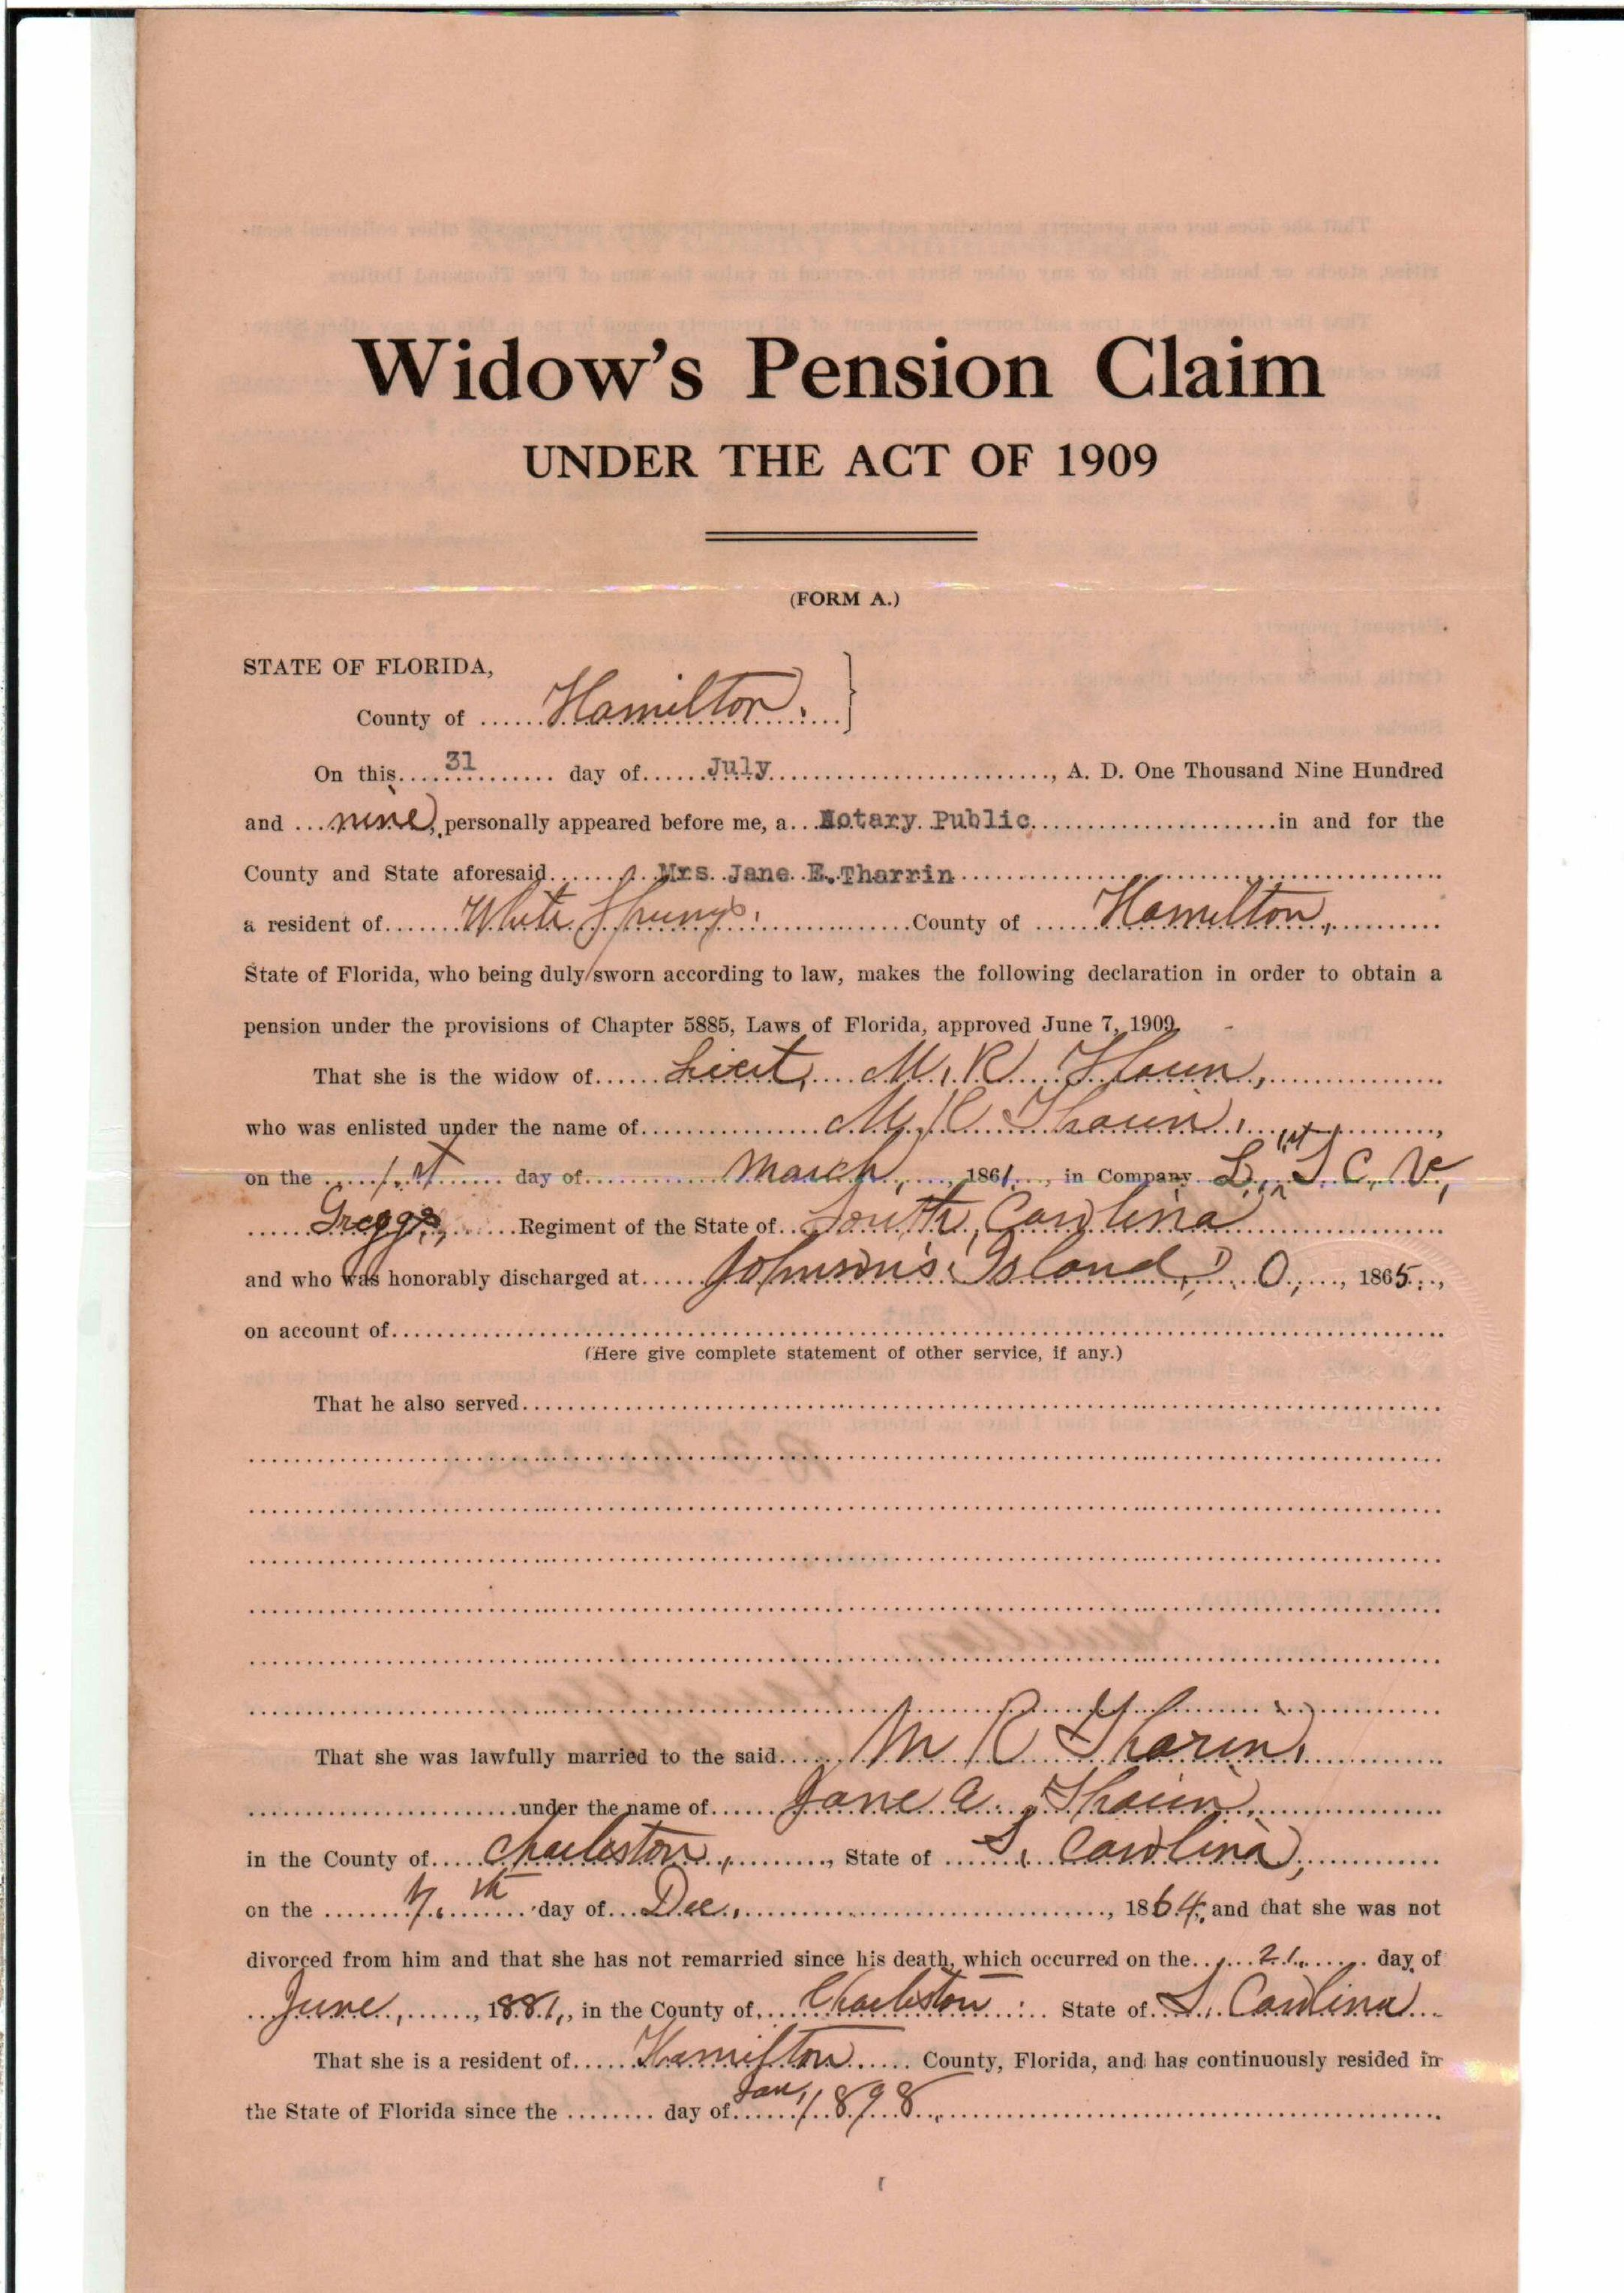 Widow's Pension Claim
UNDER THE ACT OF 1909
(FORM A.)
STATE OF FLORIDA,
County of Hamilton.
On this 31 day of July, A. D. One Thousand Nine Hundred
and nine, personally appeared before me, a Notary Public in and for the
County and State aforesaid Mrs Jane E. Tharrin
a resident of White Springs. County of Hamilton,
State of Florida, who being duly sworn according to law, makes the following declaration in order to obtain a
pension under the provisions of Chapter 5885, Laws of Florida, approved June 7, 1909.
That she is the widow of Lieut. M. R.
who was enlisted under the name of M. R. Tharin,
on the 1st day of March, 1861, in Company 1st S. C. V,
Greggs, Regiment of the State of South, Carolina
and who was honorably discharged at Johnson's Island, O, 1865,
on account of
(Here give complete statement of other service, if any.)
That he also served
That she was lawfully married to the said M R Tharin,
under the name of Jane Tharin,
in the County of Charleston, State of S. Carolina,
on the 7th day of Dec., 1864, and that she was not
divorced from him and that she has not remarried since his death, which occurred on the 21 day of
June, 1881, in the County of Charleston State of S. Carolina
That she is a resident of Hamilton County, Florida, and has continuously resided in
the State of Florida since the day of Jan, 1898